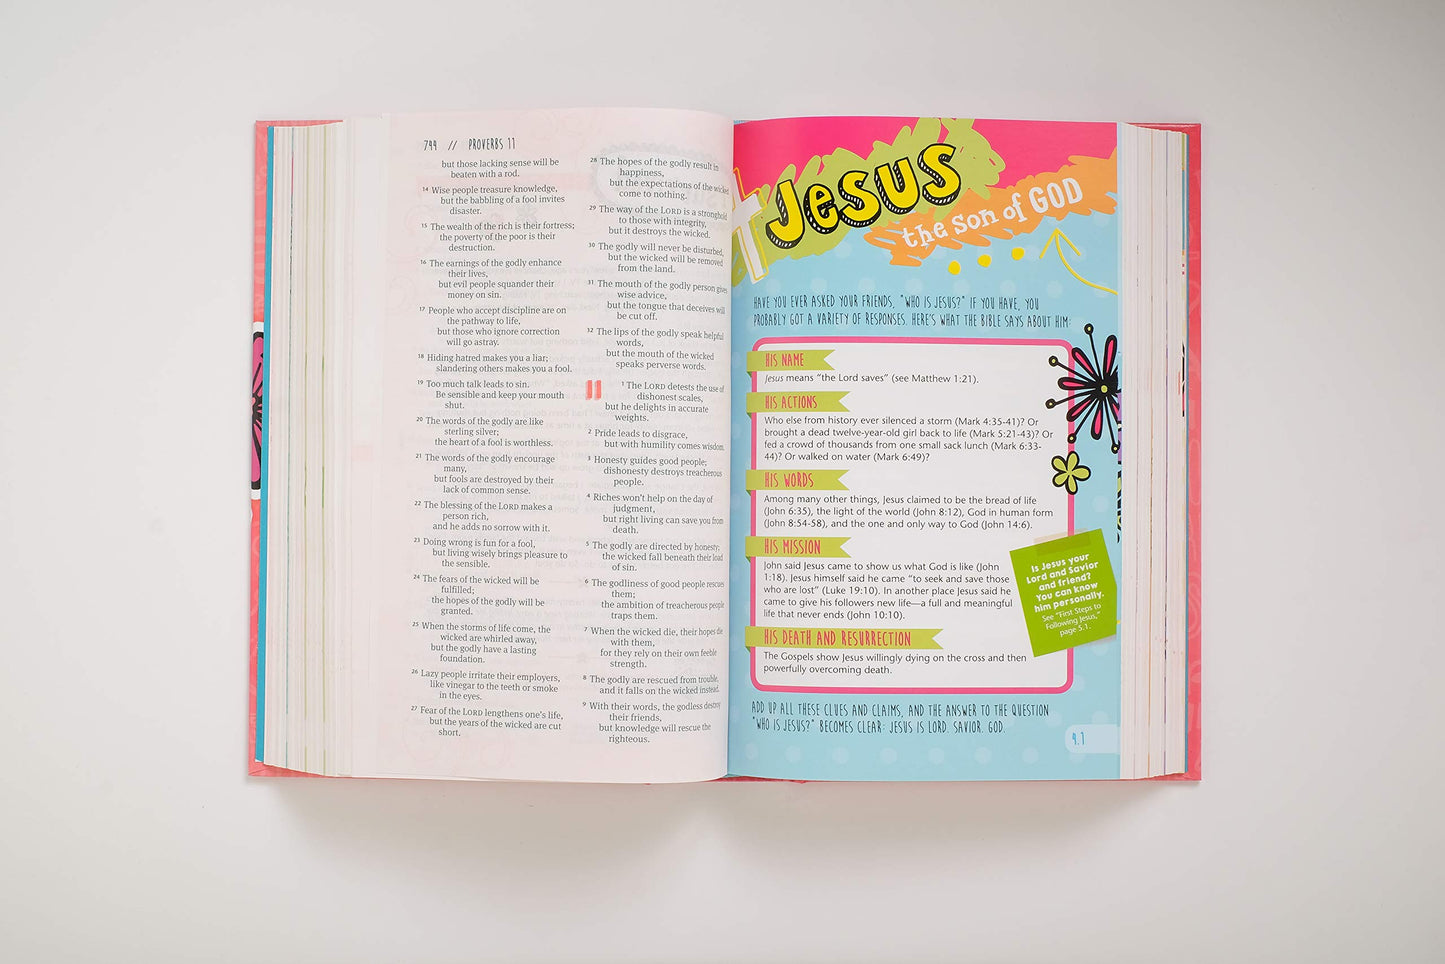 744 // PROVERBS 11
but those lacking sense will be
beaten with a rod.
14 Wise people treasure knowledge,
but the babbling of a fool invites
disaster.
15 The wealth of the rich is their fortress;
the poverty of the poor is their
destruction.
16 The earnings of the godly enhance
their lives,
but evil people squander their
money on sin.
17 People who accept discipline are on
the pathway to life,
but those who ignore correction
will go astray.
18 Hiding hatred makes you a liar;
slandering others makes you a fool.
19 Too much talk leads to sin.
Be sensible and keep your mouth
shut.
20 The words of the godly are like
sterling silver;
the heart of a fool is worthless.
21 The words of the godly encourage
many,
but fools are destroyed by their
lack of common sense.
22 The blessing of the LORD makes a
person rich,
and he adds no sorrow with it.
23 Doing wrong is fun for a fool,
but living wisely brings pleasure to
the sensible.
24 The fears of the wicked will be
fulfilled;
the hopes of the godly will be
granted.
25 When the storms of life come, the
wicked are whirled away,
but the godly have a lasting
foundation.
26 Lazy people irritate their employers,
like vinegar to the teeth or smoke
in the eyes.
27 Fear of the LORD lengthens one's life,
but the years of the wicked are cut
short.
28 The hopes of the godly result in
happiness,
but the expectations of the wicked
come to nothing.
29 The way of the LORD is a stronghold
to those with integrity,
but it destroys the wicked.
30 The godly will never be disturbed,
but the wicked will be removed
from the land.
31 The mouth of the godly person gives
wise advice,
but the tongue that deceives will
be cut off.
32 The lips of the godly speak helpful
words,
but the mouth of the wicked
speaks perverse words.
11 1 The LORD detests the use of
dishonest scales,
but he delights in accurate
weights.
2 Pride leads to disgrace,
but with humility comes wisdom.
3 Honesty guides good people;
dishonesty destroys treacherous
people.
4 Riches won't help on the day of
judgment,
but right living can save you from
death.
5 The godly are directed by honesty;
the wicked fall beneath their load
of sin.
6 The godliness of good people rescues
them;
the ambition of treacherous people
traps them.
7 When the wicked die, their hopes die
with them,
for they rely on their own feeble
strength.
8 The godly are rescued from trouble,
and it falls on the wicked instead.
9 With their words, the godless destroy
their friends,
but knowledge will rescue the
righteous.
Jesus
the Son of GOD
HAVE YOU EVER ASKED YOUR FRIENDS, "WHO IS JESUS?" IF YOU HAVE, YOU
PROBABLY GOT A VARIETY OF RESPONSES. HERE'S WHAT THE BIBLE SAYS ABOUT HIM:
HIS NAME
Jesus means "the Lord saves" (see Matthew 1:21).
HIS ACTIONS
Who else from history ever silenced a storm (Mark 4:35-41)? Or
brought a dead twelve-year-old girl back to life (Mark 5:21-43)? Or
fed a crowd of thousands from one small sack lunch (Mark 6:33-
44)? Or walked on water (Mark 6:49)?
HIS WORDS
Among many other things, Jesus claimed to be the bread of life
(John 6:35), the light of the world (John 8:12), God in human form
(John 8:54-58), and the one and only way to God (John 14:6).
HIS MISSION
John said Jesus came to show us what God is like (John
1:18). Jesus himself said he came "to seek and save those
who are lost" (Luke 19:10). In another place Jesus said he
came to give his followers new life—a full and meaningful
life that never ends (John 10:10).
HIS DEATH AND RESURRECTION
The Gospels show Jesus willingly dying on the cross and then
powerfully overcoming death.
Is Jesus your
Lord and Savior
and friend?
You can know
him personally.
See "First Steps to
Following Jesus,"
page 5.1.
ADD UP ALL THESE CLUES AND CLAIMS, AND THE ANSWER TO THE QUESTION
"WHO IS JESUS?" BECOMES CLEAR: JESUS IS LORD. SAVIOR. GOD.
4.1